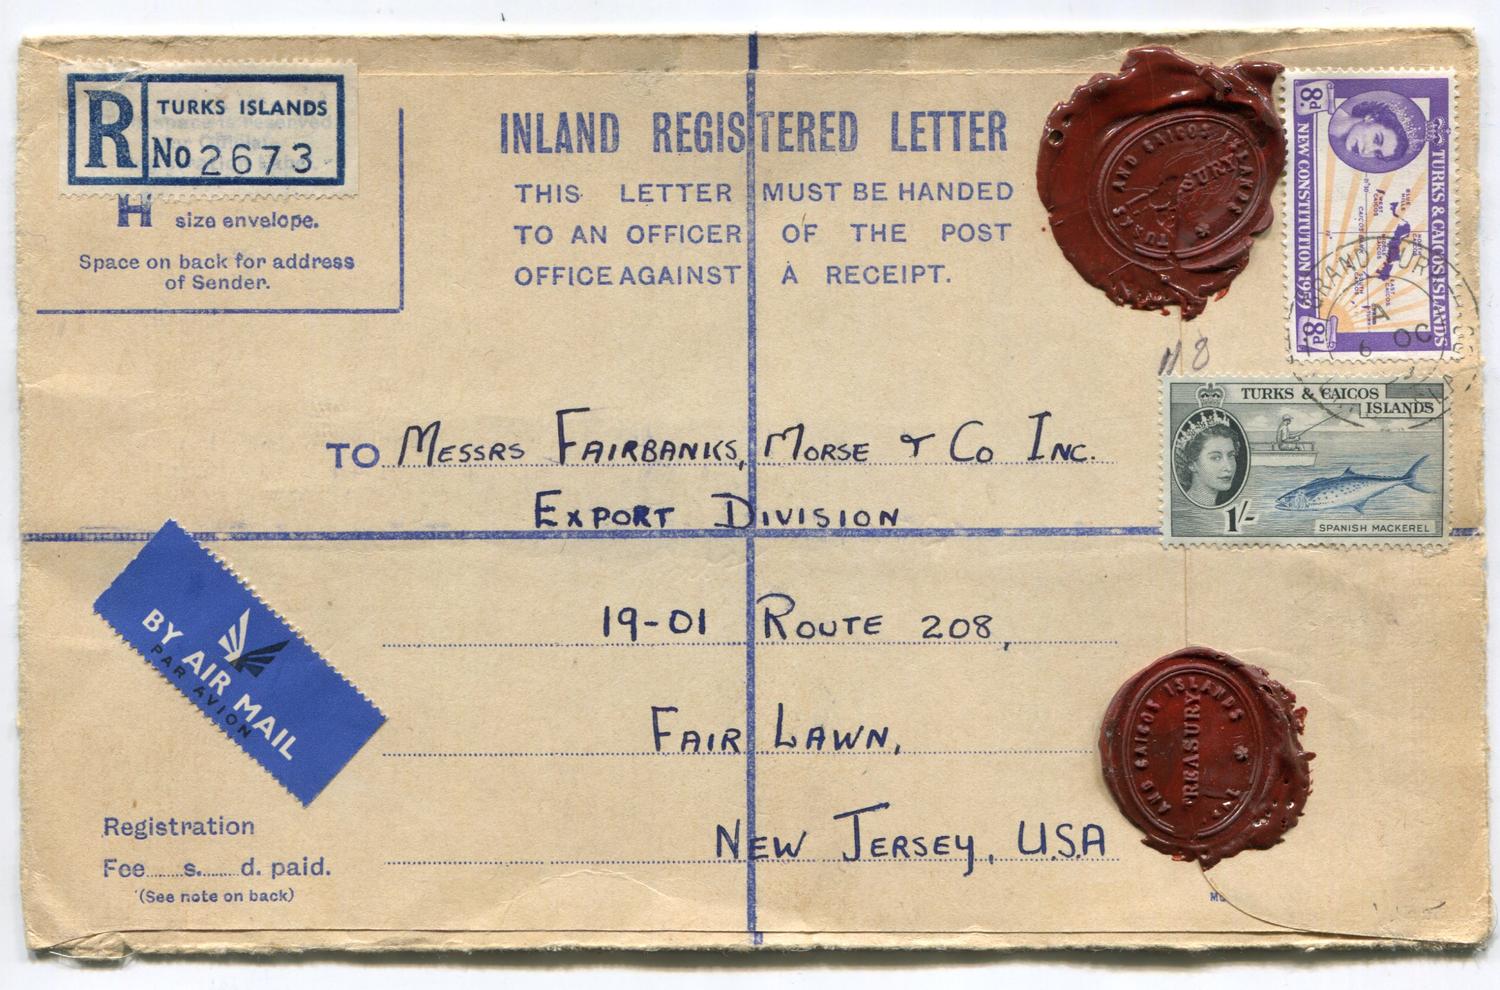 R TURKS ISLANDS
No 2673
H size envelope.
Space on back for address
of Sender.
INLAND REGISTERED LETTER
THIS LETTER MUST BE HANDED
TO AN OFFICER OF THE POST
OFFICE AGAINST A RECEIPT.
TURKS AND CAICOS ISLANDS
8Pd
8Pd
NEW CONSTITUTION 1959
TURKS & CAICOS ISLANDS
GRAND TURK
A
6 OC
8
TO MESSRS FAIRBANKS, MORSE & CO INC.
EXPORT DIVISION
19-01 ROUTE 208,
FAIR LAWN,
NEW JERSEY, U.S.A
TURKS & CAICOS
ISLANDS
1/-
SPANISH MACKEREL
BY AIR MAIL
PAR AVION
AND CAICOS ISLANDS
TREASURY
Registration
Fee......s.......d. paid.
(See note on back)